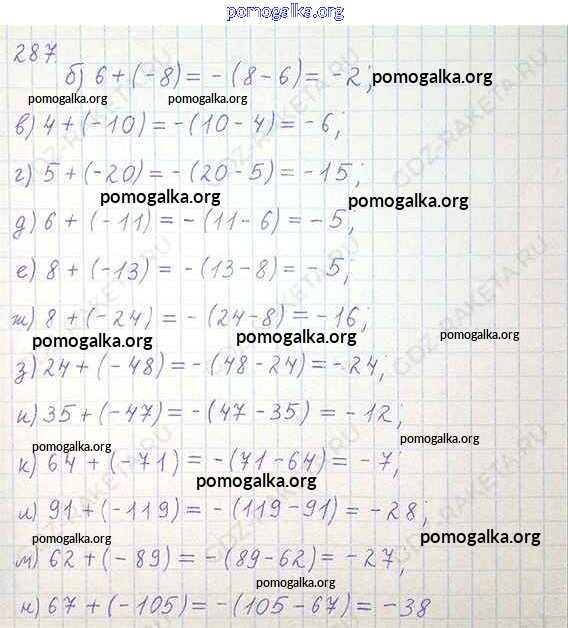 pomogalka.org
287.
б) 6 + (-8) = -(8-6) = -2; pomogalka.org
pomogalka.org pomogalka.org
в) 4 + (-10) = -(10-4) = -6;
г) 5 + (-20) = -(20-5) = -15;
pomogalka.org pomogalka.org
д) 6 + (-11) = -(11-6) = -5;
е) 8 + (-13) = -(13-8) = -5;
ж) 8 + (-24) = -(24-8) = -16;
pomogalka.org pomogalka.org pomogalka.org
з) 24 + (-48) = -(48-24) = -24;
и) 35 + (-47) = -(47-35) = -12;
pomogalka.org pomogalka.org
к) 64 + (-71) = -(71-64) = -7;
pomogalka.org
л) 91 + (-119) = -(119-91) = -28;
pomogalka.org
м) 62 + (-89) = -(89-62) = -27;
pomogalka.org
н) 67 + (-105) = -(105-67) = -38
GDZ-RAKETA.RU
GDZ-RAKETA.RU
GDZ-RAKETA.RU
GDZ-RAKETA.RU